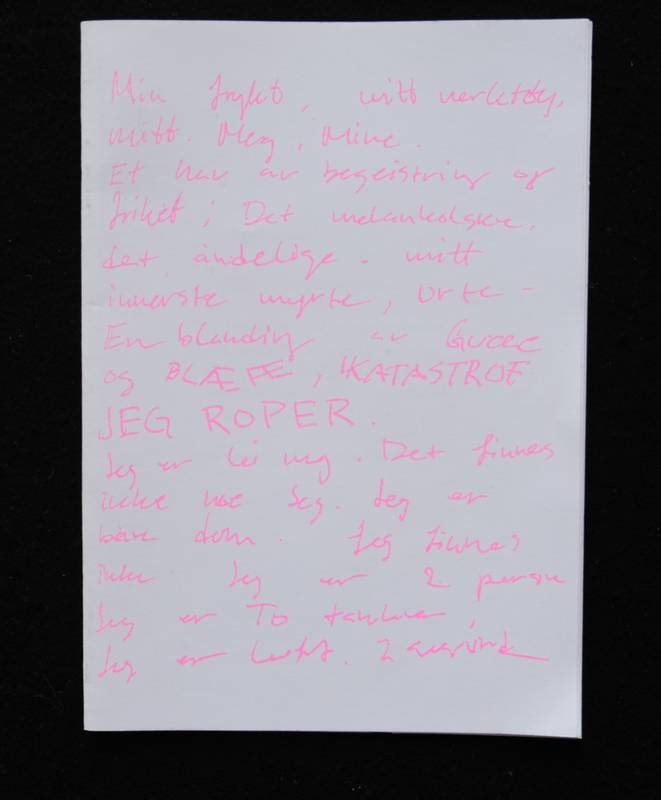 Min frykt, mitt verktøy,
mitt. Meg, Mine.
Et hav av begeistring og
frihet; Det melankolske,
det åndelige. mitt
innerste myrte, urte -
En blanding av Gucci
og BLÆFF, KATASTROF
JEG ROPER.
Jeg er lei meg. Det finnes
ikke noe Jeg. Jeg er
bare dom. Jeg finnes
ikke Jeg er 2 person
Jeg er To tanker,
Jeg er luft. 2